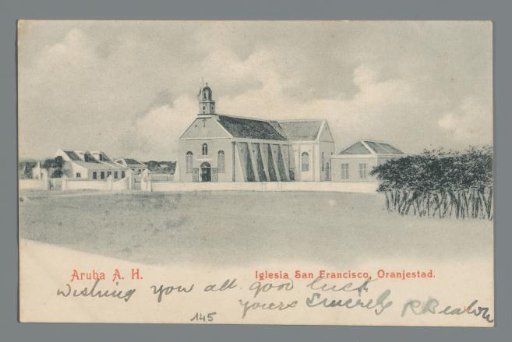 Aruba A. H. Iglesia San Francisco, Oranjestad.
Wishing you all good luck
yours Sincerely
145